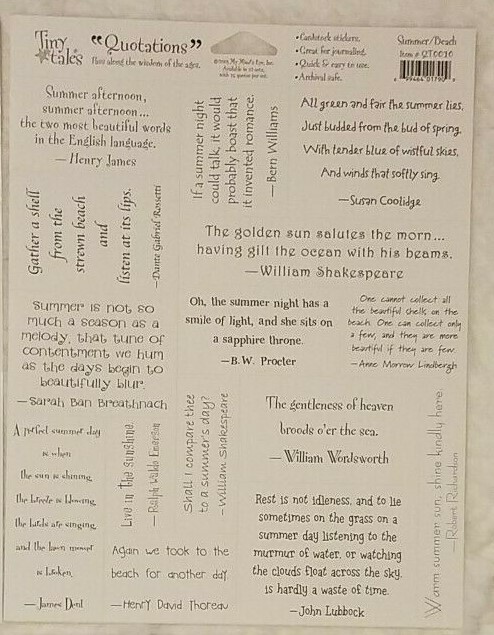 Tiny
tales
"Quotations"
Pass along the wisdom of the ages.
©2003 My Mind's Eye, Inc.
• Cardstock stickers.
• Great for journaling.
• Quick & easy to use.
• Archival safe.
Summer/Beach
Item # QT0016
Summer afternoon,
summer afternoon...
the two most beautiful words
in the English language.
—Henry James
If a summer night
could talk, it would
probably boast that
it invented romance.
—Bern Williams
All green and fair the summer lies,
Just budded from the bud of spring,
With tender blue of wistful skies,
And winds that softly sing.
—Susan Coolidge
Gather a shell
from the
strewn beach
and
listen at its lips.
—Dante Gabriel Rossetti
The golden sun salutes the morn...
having gilt the ocean with his beams.
—William Shakespeare
Summer is not so
much a season as a
melody, that tune of
contentment we hum
as the days begin to
beautifully blur.
—Sarah Ban Breathnach
Oh, the summer night has a
smile of light, and she sits on
a sapphire throne.
—B.W. Procter
One cannot collect all
the beautiful shells on the
beach. One can collect only
a few, and they are more
beautiful if they are few.
—Anne Morrow Lindbergh
A perfect summer day
is when
the sun is shining,
the breeze is blowing,
the birds are singing,
and the lawn mower
is broken.
—James Dent
Live in the sunshine.
—Ralph Waldo Emerson
Shall I compare thee
to a summer's day?
—William Shakespeare
The gentleness of heaven
broods o'er the sea.
—William Wordsworth
Again we took to the
beach for another day.
—Henry David Thoreau
Rest is not idleness, and to lie
sometimes on the grass on a
summer day listening to the
murmur of water, or watching
the clouds float across the sky,
is hardly a waste of time.
—John Lubbock
Warm summer sun, shine kindly here.
—Robert Richardson